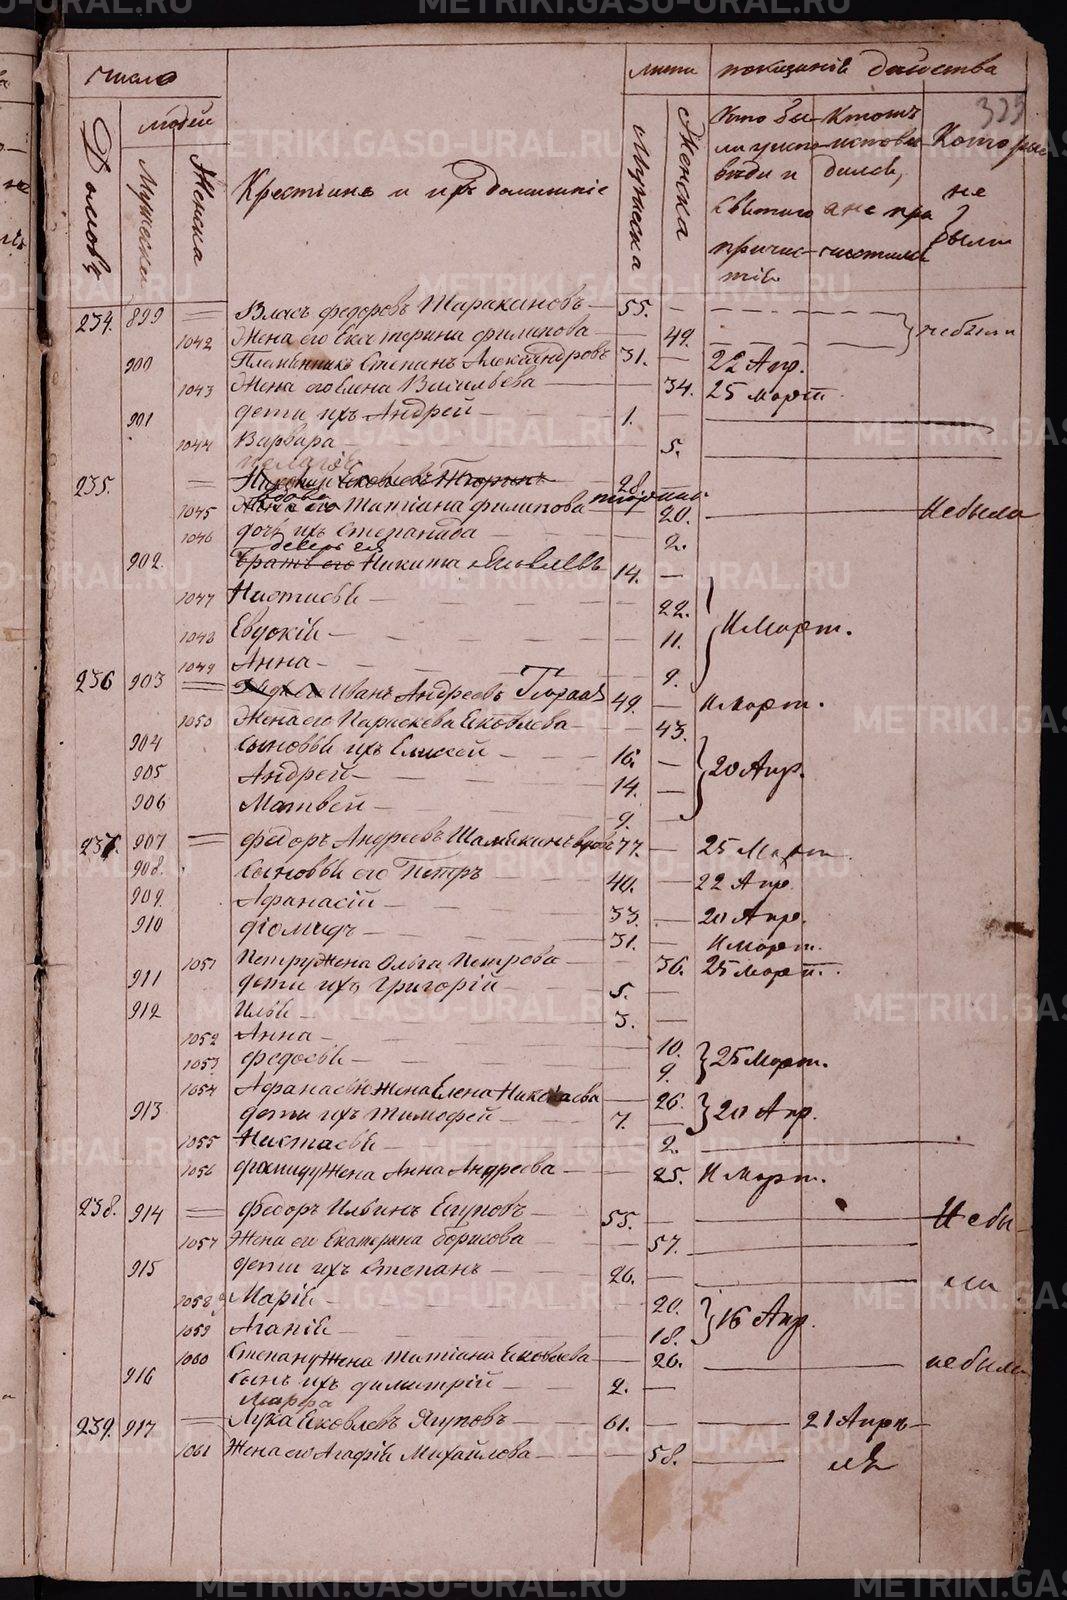 Число
Лѣта показаніе дѣйства
329
Домовъ
людей
Мужеска
Женска
Крестьянъ и ихъ домашніе
Мужеска
Женска
Кто бы-
ли у испо-
вѣди и
святаго
причас-
тія
Ктотъ
исповѣ-
дался,
а не при
частился
Которые
не
были
234. 899 Власъ Федоровъ Таракановъ 55.
1042 Жена его Екатерина Филипова 49. небыли
900 Племянникъ Степанъ Александровъ 31. 22 Апр.
1043 Жена его Елена Васильева 34. 25 Март.
901 Дети ихъ Андрей 1.
1044 Варвара 5.
235. Яковлевъ 28.
1045 вдова Татіана Филипова 20. Небыла
1046 дочь ихъ Степанида 2.
902. братъ его деверь ея Никита Яковлевъ 14.
1047 Настасья 22.
1048 Евдокія 11. И Март.
1049 Анна 9.
236 903 Иванъ Андреевъ 49. И Март.
1050 Жена его Параскева Яковлева 43.
904 Сыновья ихъ Елисей 16.
905 Андрей 14. 20 Апр.
906 Матвей 9.
237. 907 Федоръ Андреевъ вдовъ 77. 25 Март.
908. Сыновья его Петръ 40. 22 Апр.
909. Афанасій 33. 20 Апр.
910 Фіомидъ 31. И Март.
1051 Петру Жена Ольга Петрова 36. 25 Март.
911 дети ихъ Григорій 5.
912 Илья 3.
1052 Анна 10.
1053 Федосья 9. 25 Март.
1054 Афанасью жена Елена Николаева 26.
913 дети ихъ Тимофей 7. 20 Апр.
1055 Настасья 2.
1056 Фіомиду Жена Анна Андреева 25. И Март.
238. 914 Федоръ Ильинъ Ягуповъ 55. Небы-
1057 Жена его Екатерина Борисова 57.
915 дети ихъ Степанъ 26. ли
1058 Марія 20.
1059 Агапія 18. 16 Апр.
1060 Степану Жена Татіана Яковлева 26. небыли
916 Сынъ ихъ Димитрій 2.
Марфа
239. 917 Лука Яковлевъ Ягуповъ 61. 21 Апрѣ-
1061 Жена его Агафія Михайлова 58. ля
METRIKI.GASO-URAL.RU